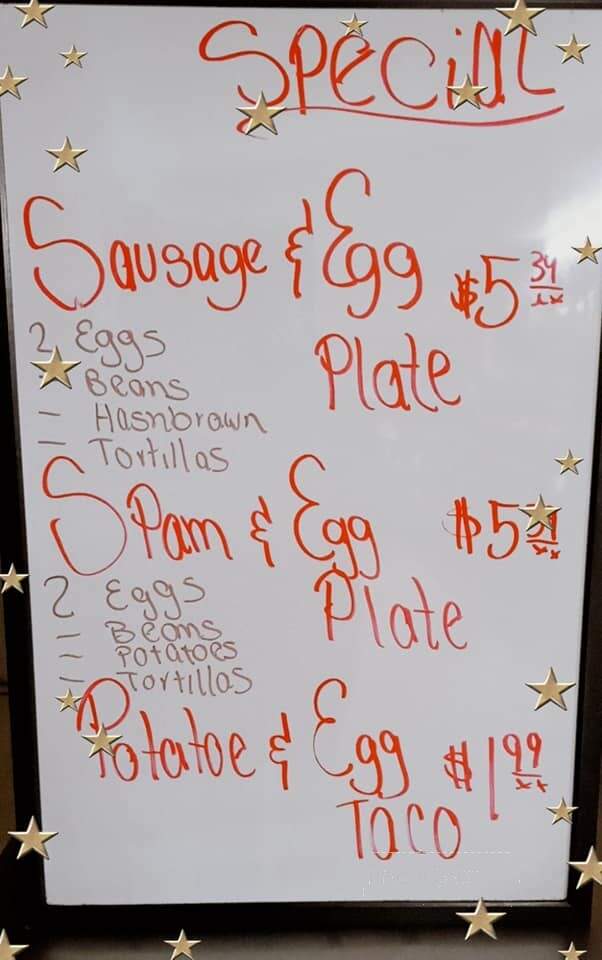 Special
Sausage & Egg $5 34/xx
Plate
2 Eggs
Beans
- Hasnbrawn
- Tortillas
Spam & Egg $5
Plate
2 Eggs
- Beans
- Potatoes
- Tortillas
Potatoe & Egg $1 99/xx
Taco